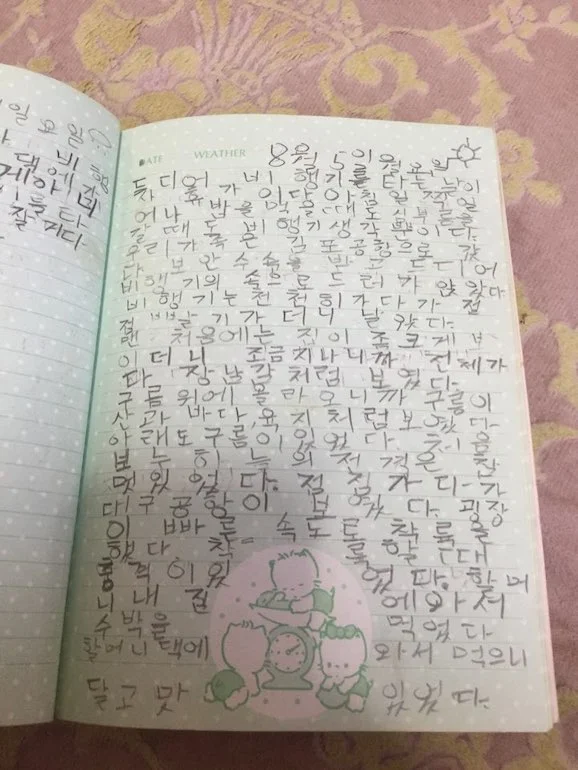 1일 요일
비행
댁에
게아
들다
잘거다
DATE WEATHER 8월 5일 월요일
드디어 비행기를 타는 날이
다. 휴가 있다 아침 일
어나 밥을 먹을때도 심부름을
갈때도 온통 비행기생각뿐이다.
우리가 간곳은 김포공항으로 갔
다 보안수속을 받고 드디어
비행기의 속으로 드러가 앉았다
비행기는 천천히가다가 점
점 빨라가더니 날았다.
맨 처음에는 집이 족크게 보
이더니 조금지나니까 전체가
다 장난감처럼 보였다.
구름위에 올라오니까 구름이
산과 바다,육지처럼보였다
아래도 구름이있었다 처음
보는 하늘의 전경은 참
멋있었다. 점점가다가
대구공항이 보였다. 굉장
이 빠를 속도로 착륙을
했다 착륙할때
충격이있었다. 할머
니내 집에와서
수박을 먹었다
할머니댁에 와서 먹으니
달고 맛있었다.